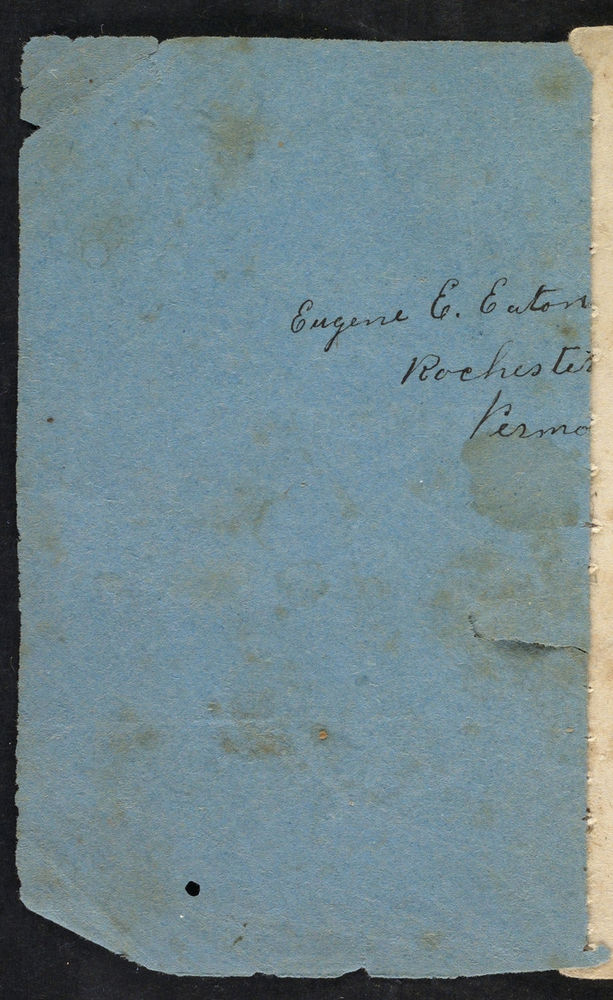 Eugene E. Eaton
Rochester
Vermo